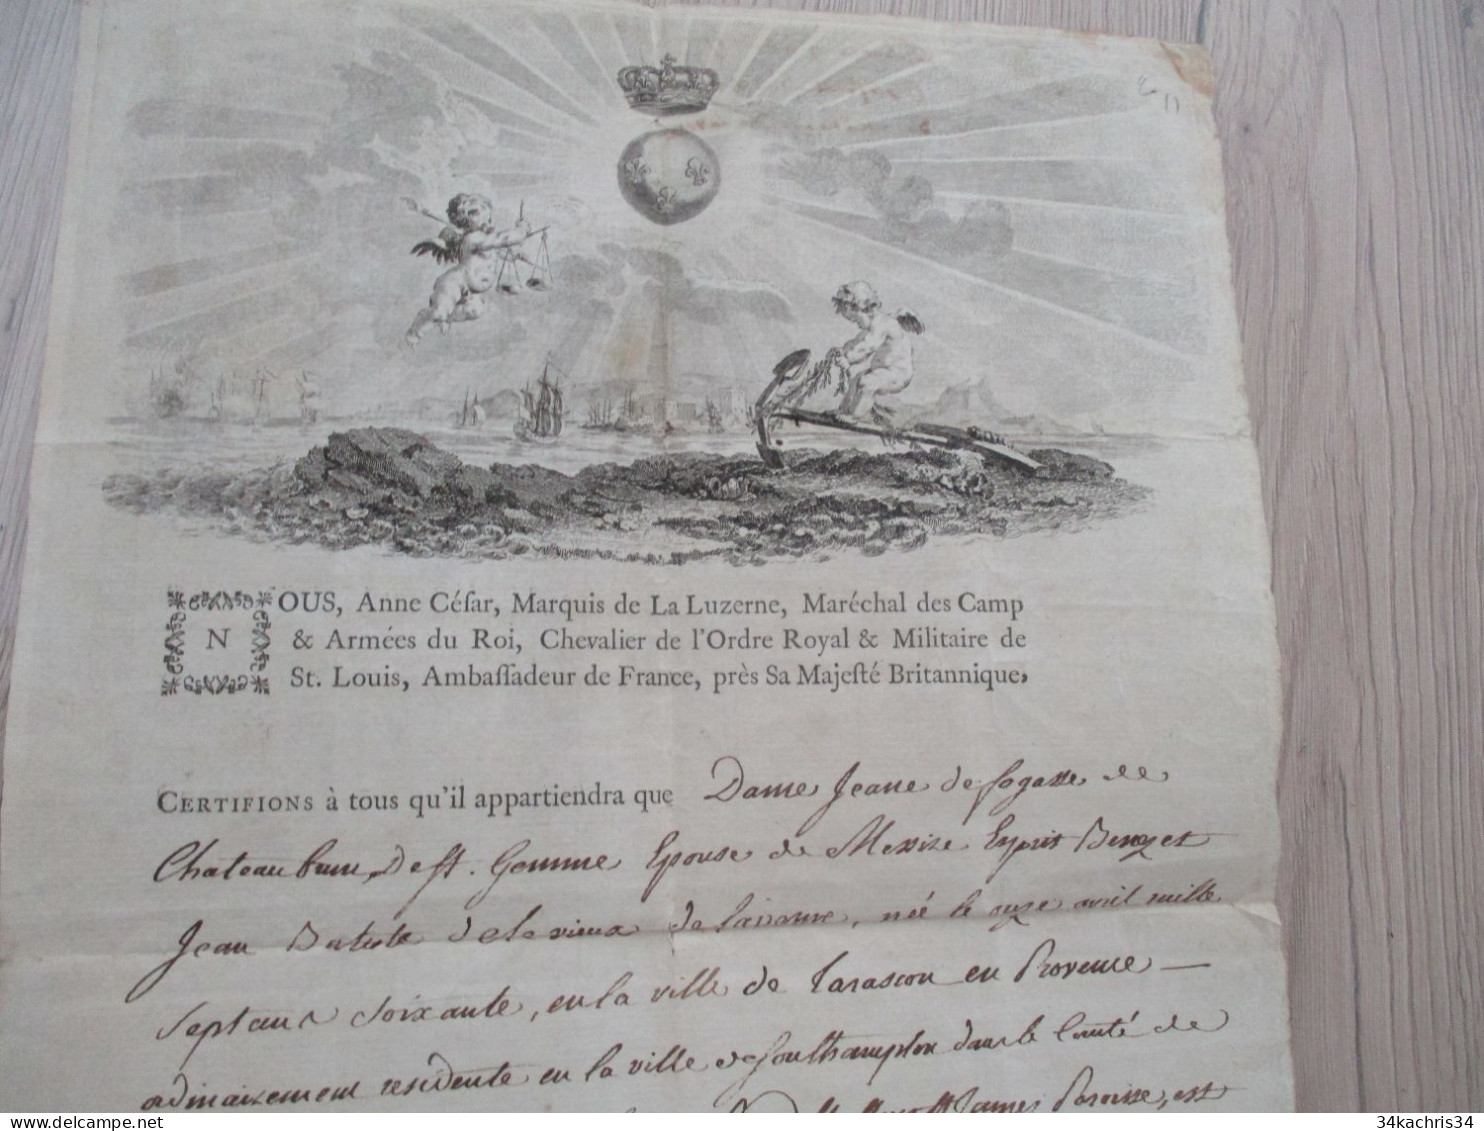 NOUS, Anne Céſar, Marquis de La Luzerne, Maréchal des Camp
& Armées du Roi, Chevalier de l'Ordre Royal & Militaire de
St. Louis, Ambaſſadeur de France, près Sa Majeſté Britannique,
CERTIFIONS à tous qu'il appartiendra que Dame Jeane de fogasse de
Chateaubrun, De St. Gemme Epouse de Messire Esprit Benezet
Jean Batiste de le vieux de laverne, née le onze avril mille
Septcens Soixante, en la ville de Tarascon en Provence —
adinairement residente en la ville de Southampton dans le Comté de
St James Paroisse, est
www.delcampe.net
34kachris34